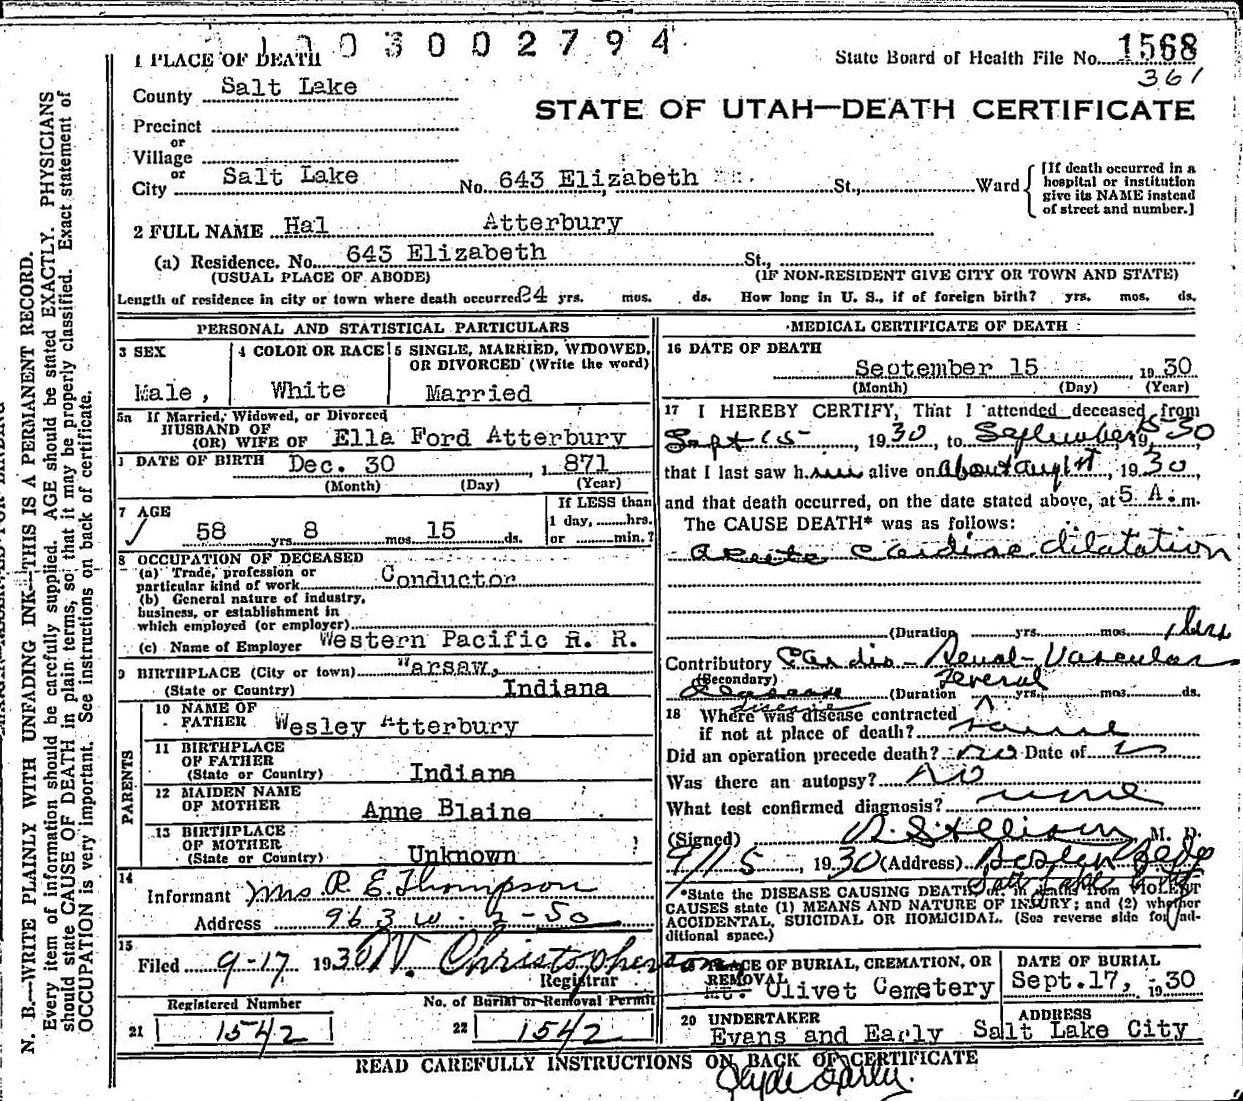 1003002794
State Board of Health File No. 1568
361
1 PLACE OF DEATH
County Salt Lake
STATE OF UTAH—DEATH CERTIFICATE
Precinct
or
Village
or
City Salt Lake No. 643 Elizabeth St., Ward
[If death occurred in a
hospital or institution
give its NAME instead
of street and number.]
2 FULL NAME Hal Atterbury
(a) Residence. No. 643 Elizabeth St.,
(USUAL PLACE OF ABODE) (IF NON-RESIDENT GIVE CITY OR TOWN AND STATE)
Length of residence in city or town where death occurred 24 yrs. mos. ds. How long in U. S., if of foreign birth? yrs. mos. ds.
PERSONAL AND STATISTICAL PARTICULARS
3 SEX
Male,
4 COLOR OR RACE
White
5 SINGLE, MARRIED, WIDOWED,
OR DIVORCED (Write the word)
Married
5a If Married, Widowed, or Divorced
HUSBAND OF
(OR) WIFE OF Ella Ford Atterbury
DATE OF BIRTH Dec. 30 , 1 871
(Month) (Day) (Year)
7 AGE
58 yrs. 8 mos. 15 ds.
If LESS than
1 day, ........hrs.
or .........min.?
8 OCCUPATION OF DECEASED
(a) Trade, profession or
particular kind of work Conductor
(b) General nature of industry,
business, or establishment in
which employed (or employer)
(c) Name of Employer Western Pacific R. R.
9 BIRTHPLACE (City or town) Warsaw,
(State or Country) Indiana
PARENTS
10 NAME OF
FATHER Wesley Atterbury
11 BIRTHPLACE
OF FATHER
(State or Country) Indiana
12 MAIDEN NAME
OF MOTHER Anne Blaine
13 BIRTHPLACE
OF MOTHER
(State or Country) Unknown
14
Informant Mrs R. E. Thompson
Address 963 W. 2-So
15
Filed 9-17 1930 W. Christopherson
Registrar
Registered Number
21 1542
No. of Burial or Removal Permit
22 1542
MEDICAL CERTIFICATE OF DEATH
16 DATE OF DEATH
September 15 , 1930
(Month) (Day) (Year)
17 I HEREBY CERTIFY, That I attended deceased from
Sept 15 , 1930, to September 15 1930
that I last saw h alive on about Aug 1st, 1930,
and that death occurred, on the date stated above, at 5 A. m.
The CAUSE DEATH* was as follows:
acute cardiac dilatation
(Duration yrs. mos.
Contributory Cardio-Renal-Vascular
(Secondary) disease
disease (Duration several yrs. mos. ds.
18 Where was disease contracted
if not at place of death?
Did an operation precede death? no Date of
Was there an autopsy? No
What test confirmed diagnosis? none
(Signed) M. D.
9/15, 1930 (Address) Boston Bldg
Salt Lake City
*State the DISEASE CAUSING DEATH, or, in deaths from VIOLENT
CAUSES state (1) MEANS AND NATURE OF INJURY; and (2) whether
ACCIDENTAL, SUICIDAL OR HOMICIDAL. (See reverse side for ad-
ditional space.)
19 PLACE OF BURIAL, CREMATION, OR
REMOVAL
Mt. Olivet Cemetery
DATE OF BURIAL
Sept.17, 1930
20 UNDERTAKER
Evans and Early
ADDRESS
Salt Lake City
READ CAREFULLY INSTRUCTIONS ON BACK OF CERTIFICATE
Clyde Early.
N. B.—WRITE PLAINLY WITH UNFADING INK—THIS IS A PERMANENT RECORD.
Every item of information should be carefully supplied. AGE should be stated EXACTLY. PHYSICIANS
should state CAUSE OF DEATH in plain terms, so that it may be properly classified. Exact statement of
OCCUPATION is very important. See instructions on back of certificate.